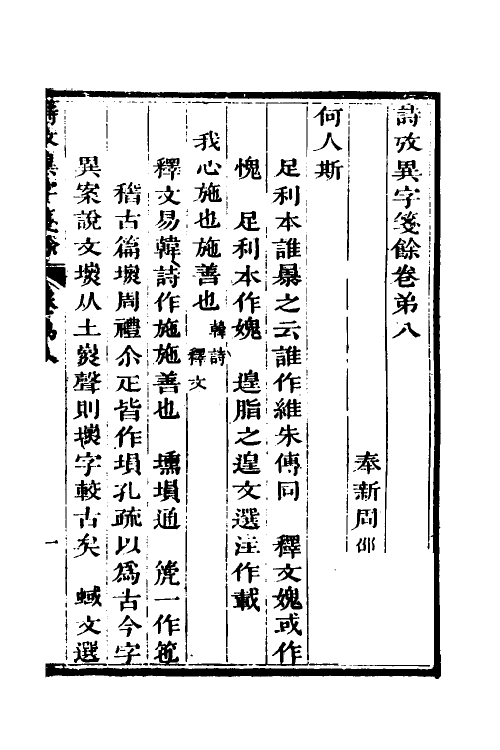 詩攷異字箋餘卷弟八
奉新周邵
何人斯
足利本誰暴之云誰作維朱傳同　釋文媿或作
愧　足利本作媿　遑脂之遑文選注作載
我心施也施善也韓詩釋文
釋文易韓詩作施施善也　壎塤通　箎一作竾
稽古篇壎周禮尒疋皆作塤孔疏以爲古今字
異案說文壎从土熏聲則壎字較古矣　蜮文選
詩攷異字箋餘　卷弟八
一